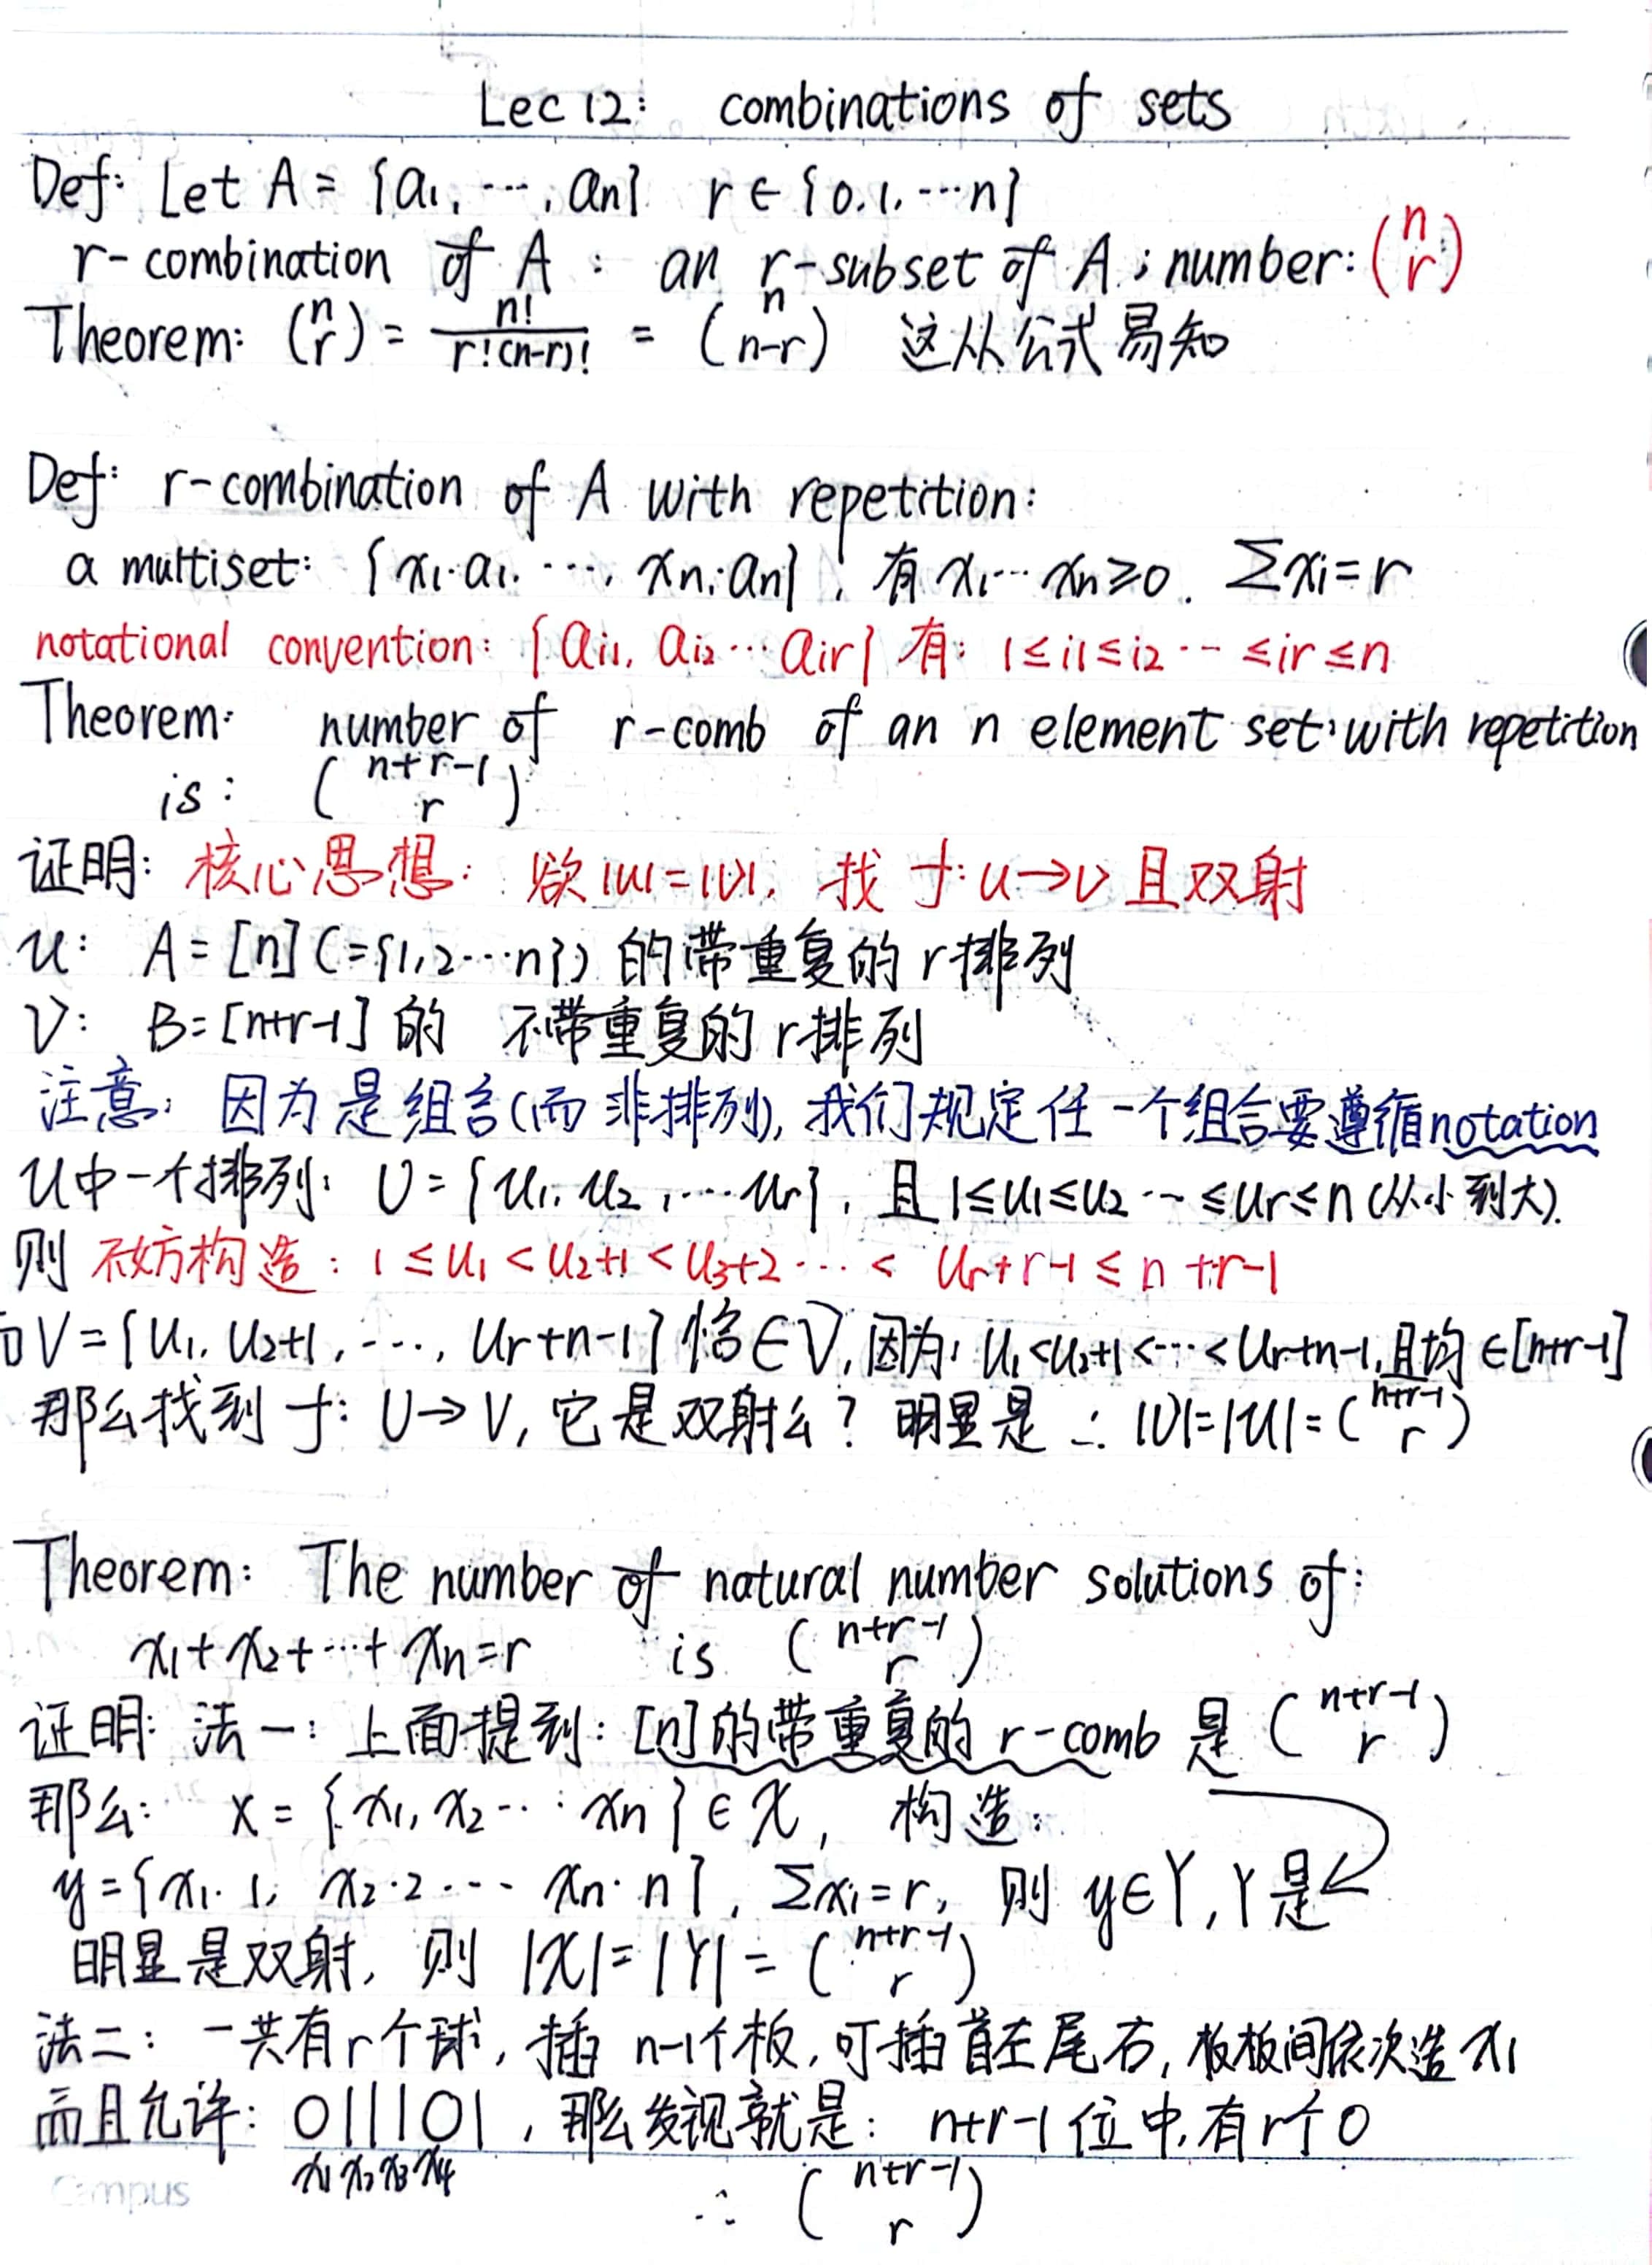 Lec 12: combinations of sets
Def: Let A = {a₁, ···, aₙ} r ∈ {0,1,···n}
r-combination of A : an r-subset of A ; number: (n r)
Theorem: (n r) = n!/r!(n-r)! = (n n-r) 这从公式易知
Def: r-combination of A with repetition:
a multiset: {x₁·a₁, ···, xₙ·aₙ}, 有 x₁···xₙ≥0. Σxᵢ=r
notational convention: {aᵢ₁, aᵢ₂···aᵢᵣ} 有: 1≤i₁≤i₂···≤iᵣ≤n
Theorem: number of r-comb of an n element set with repetition
is: (n+r-1 r)
证明: 核心思想: 欲|U|=|V|, 找 f:U→V 且双射
U: A=[n](={1,2···n}) 的带重复的r排列
V: B=[n+r-1] 的 不带重复的r排列
注意: 因为是组合(而非排列), 我们规定任一个组合要遵循notation
U中一个排列: U={u₁, u₂, ···uᵣ}, 且1≤u₁≤u₂···≤uᵣ≤n (从小到大).
则 不妨构造: 1≤u₁<u₂+1<u₃+2···< uᵣ+r-1≤n+r-1
而V={u₁, u₂+1, ···, uᵣ+n-1}恰∈V, 因为: u₁<u₂+1<···<uᵣ+n-1,且均∈[n+r-1]
那么找到 f: U→V, 它是双射么? 明显是 ∴ |V|=|U|=(n+r-1 r)
Theorem: The number of natural number solutions of:
x₁+x₂+···+xₙ=r is (n+r-1 r)
证明: 法一: 上面提到: [n]的带重复的 r-comb 是 (n+r-1 r)
那么: x={x₁,x₂···xₙ}∈X, 构造:
y={x₁·1, x₂·2··· xₙ·n}, Σxᵢ=r, 则 y∈Y, Y是
明显是双射, 则 |X|=|Y|=(n+r-1 r)
法二: 一共有r个球, 插 n-1个板, 可插首左尾右, 板板间依次造 x₁
而且允许: 0111101, 那么发现就是: n+r-1位中,有r个0
x₁ x₂ x₃ x₄
∴ (n+r-1 r)
Campus